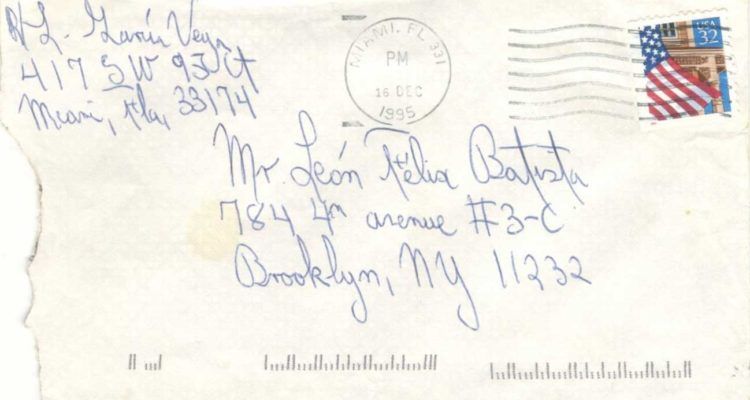 L. García Vega
417 SW 93 Ct
Miami, Fla, 33174
MIAMI, FL 331
PM
16 DEC
1995
USA
32
Mr. León Félix Batista
784 4th avenue #3-C
Brooklyn, NY 11232